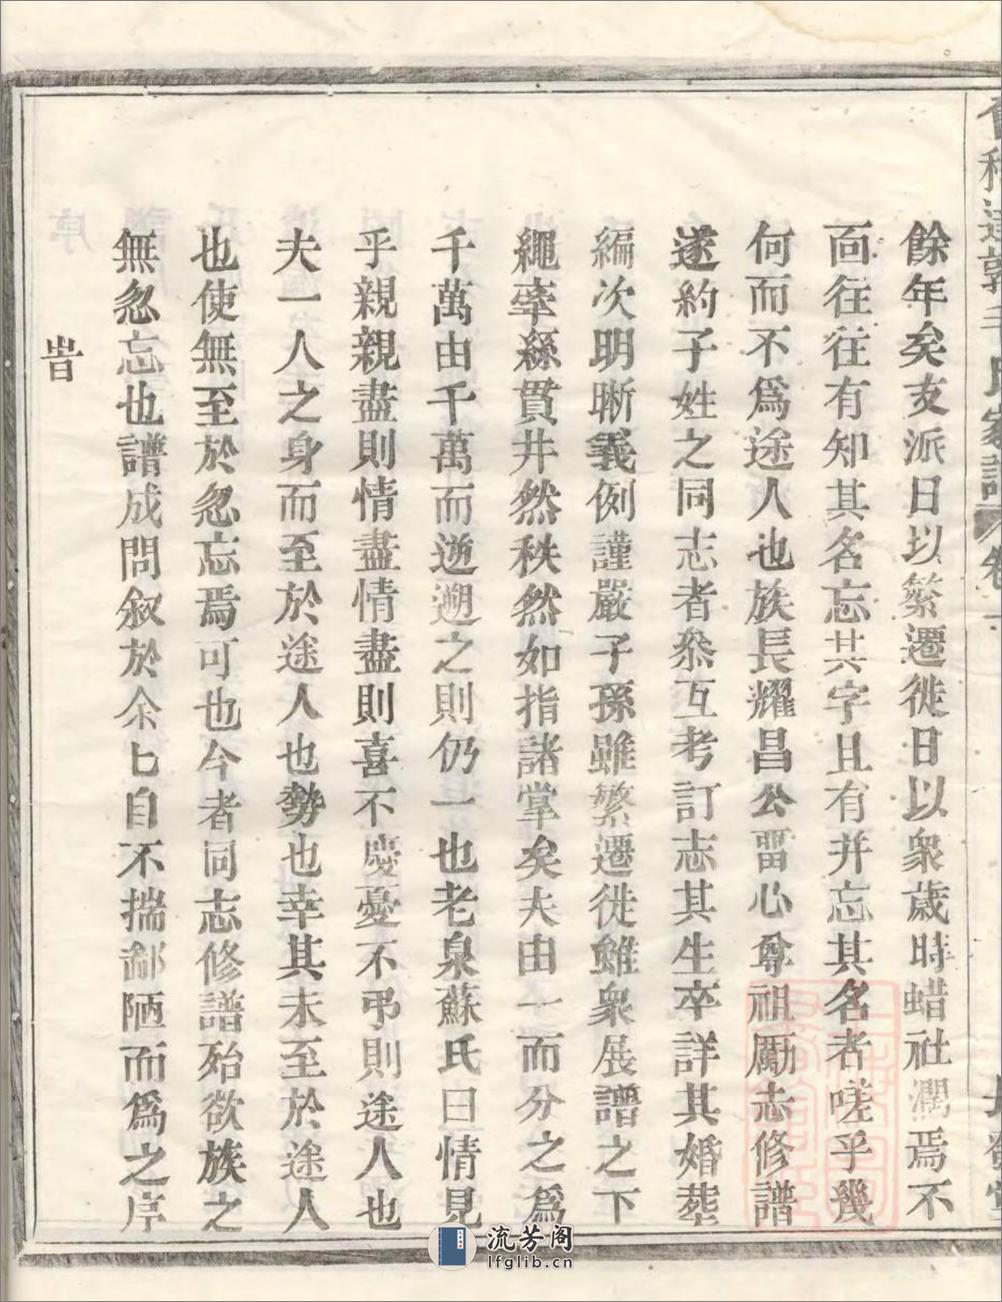 餘年矣支派日以繁遷徙日以衆歲時蜡社濶焉不
面往往有知其名忘其字且有并忘其名者嗟乎幾
何而不爲途人也族長耀昌公畱心尊祖勵志修譜
遂約子姓之同志者叅互考訂志其生卒詳其婚塟
編次明晰義例謹嚴子孫雖繁遷徙雖衆展譜之下
繩牽絲貫井然秩然如指諸掌矣夫由一而分之爲
千萬由千萬而逆遡之則仍一也老泉蘇氏曰情見
乎親親盡則情盡情盡則喜不慶憂不弔則途人也
夫一人之身而至於途人也勢也幸其未至於途人
也使無至於忽忘焉可也今者同志修譜殆欲族之
無忽忘也譜成問叙於余匕自不揣鄙陋而爲之序
旹
流芳阁
lfglib.cn